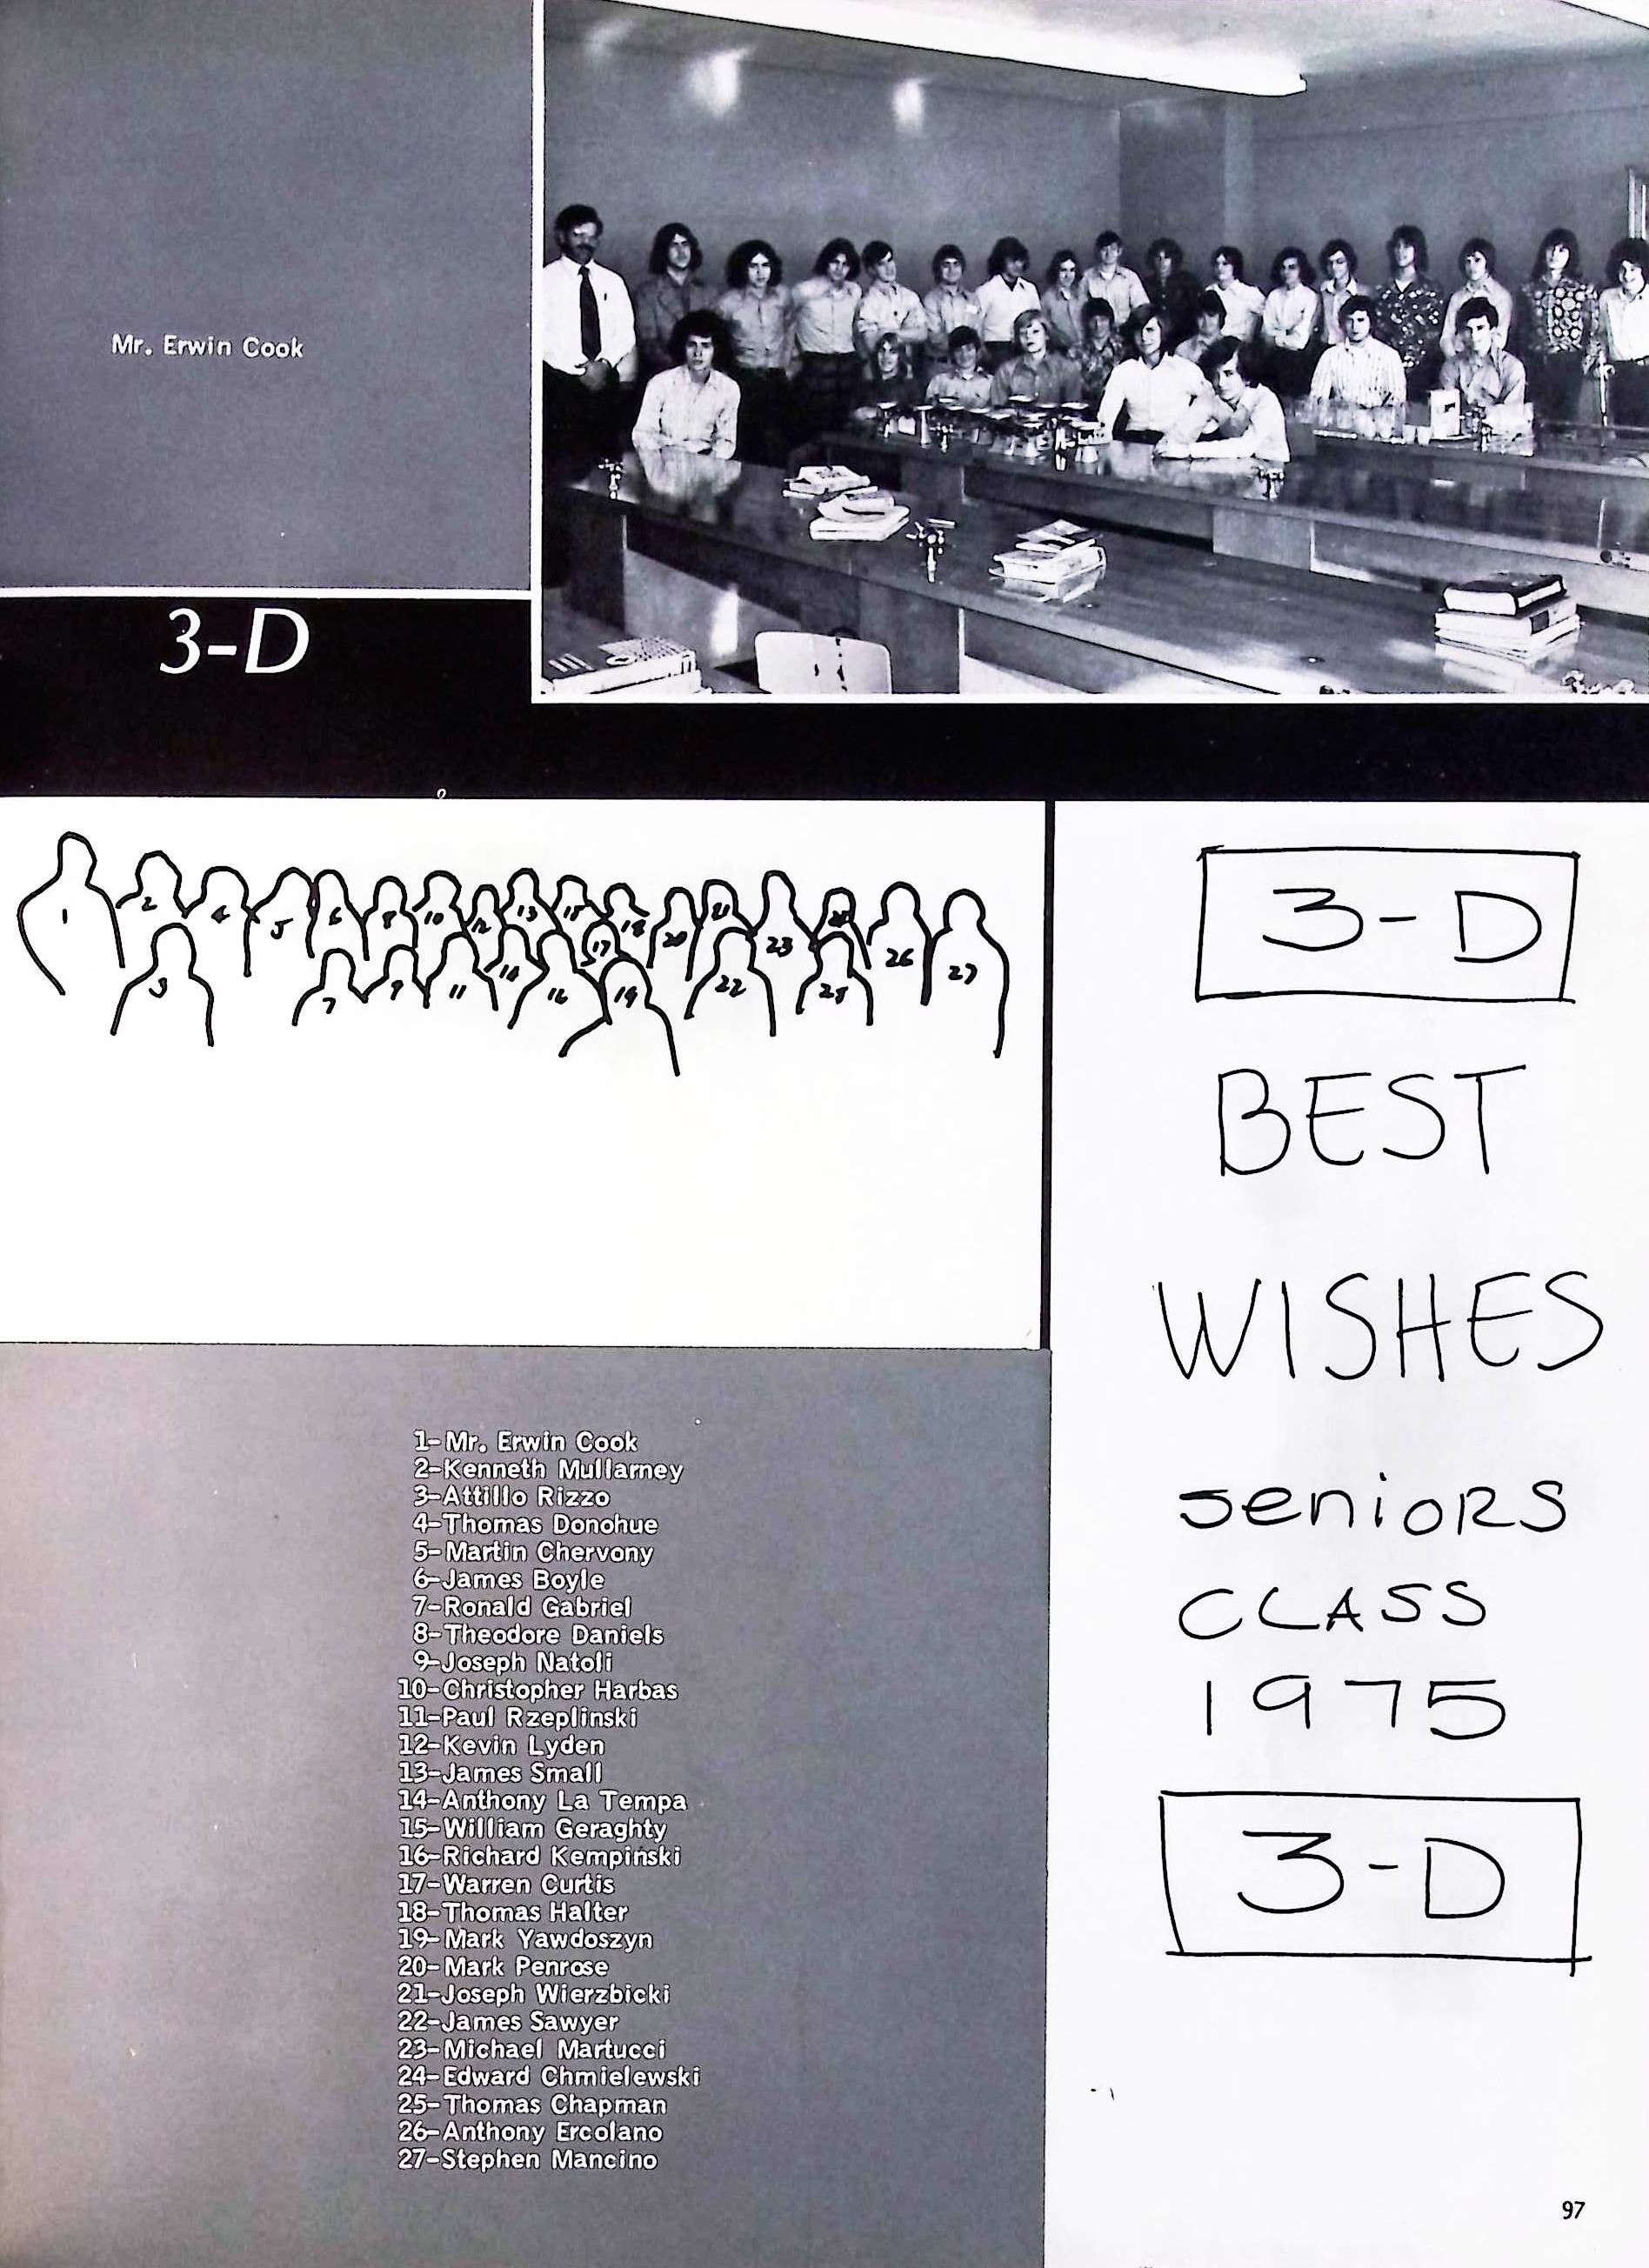 Mr. Erwin Cook
3-D
1 2 3 4 5 6 7 8 9 10 11 12 13 14 15 16 17 18 19 20 21 22 23 25 26 27
3-D
BEST
WISHES
SENIORS
CLASS
1975
3-D
1-Mr. Erwin Cook
2-Kenneth Mullarney
3-Attillo Rizzo
4-Thomas Donohue
5-Martin Chervony
6-James Boyle
7-Ronald Gabriel
8-Theodore Daniels
9-Joseph Natoli
10-Christopher Harbas
11-Paul Rzeplinski
12-Kevin Lyden
13-James Small
14-Anthony La Tempa
15-William Geraghty
16-Richard Kempinski
17-Warren Curtis
18-Thomas Halter
19-Mark Yawdoszyn
20-Mark Penrose
21-Joseph Wierzbicki
22-James Sawyer
23-Michael Martucci
24-Edward Chmielewski
25-Thomas Chapman
26-Anthony Ercolano
27-Stephen Mancino
97